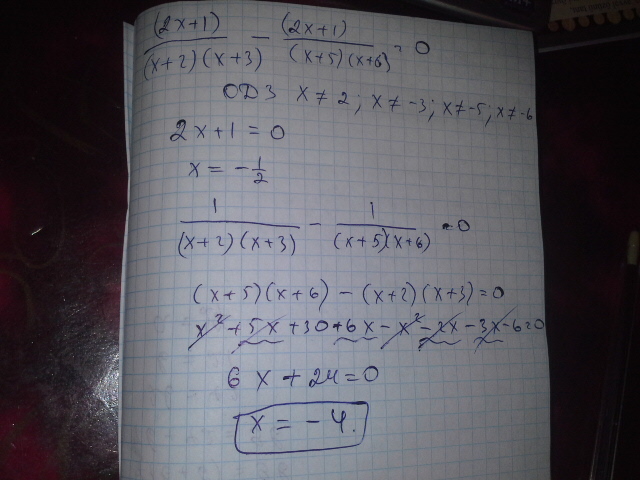 (2x+1)/((x+2)(x+3)) - (2x+1)/((x+5)(x+6)) = 0
ОДЗ x ≠ 2; x ≠ -3; x ≠ -5; x ≠ -6
2x+1 = 0
x = -1/2
1/((x+2)(x+3)) - 1/((x+5)(x+6)) = 0
(x+5)(x+6) - (x+2)(x+3) = 0
x² + 5x + 30 + 6x - x² - 2x - 3x - 6 = 0
6x + 24 = 0
x = -4.